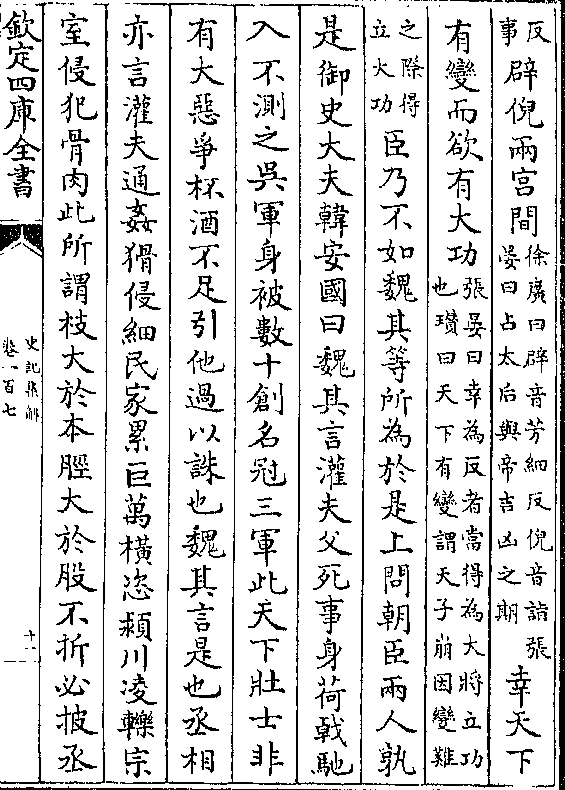 反事辟倪兩宫間徐廣曰辟音芳細反倪音詣張晏曰占太后與帝吉凶之期幸天下
有變而欲有大功張晏曰幸為反者當得為大將立功也瓚曰天下有變謂天子崩因變難
之際得立大功臣乃不如魏其等所為於是上問朝臣兩人孰
是御史大夫韓安國曰魏其言灌夫父死事身荷戟馳
入不測之吳軍身被數十創名冠三軍此天下壯士非
有大惡爭杯酒不足引他過以誅也魏其言是也丞相
亦言灌夫通姦猾侵細民家累巨萬橫恣潁川凌轢宗
室侵犯骨肉此所謂枝大於本脛大於股不折必披丞
欽定四庫全書
史記集解
卷一百七